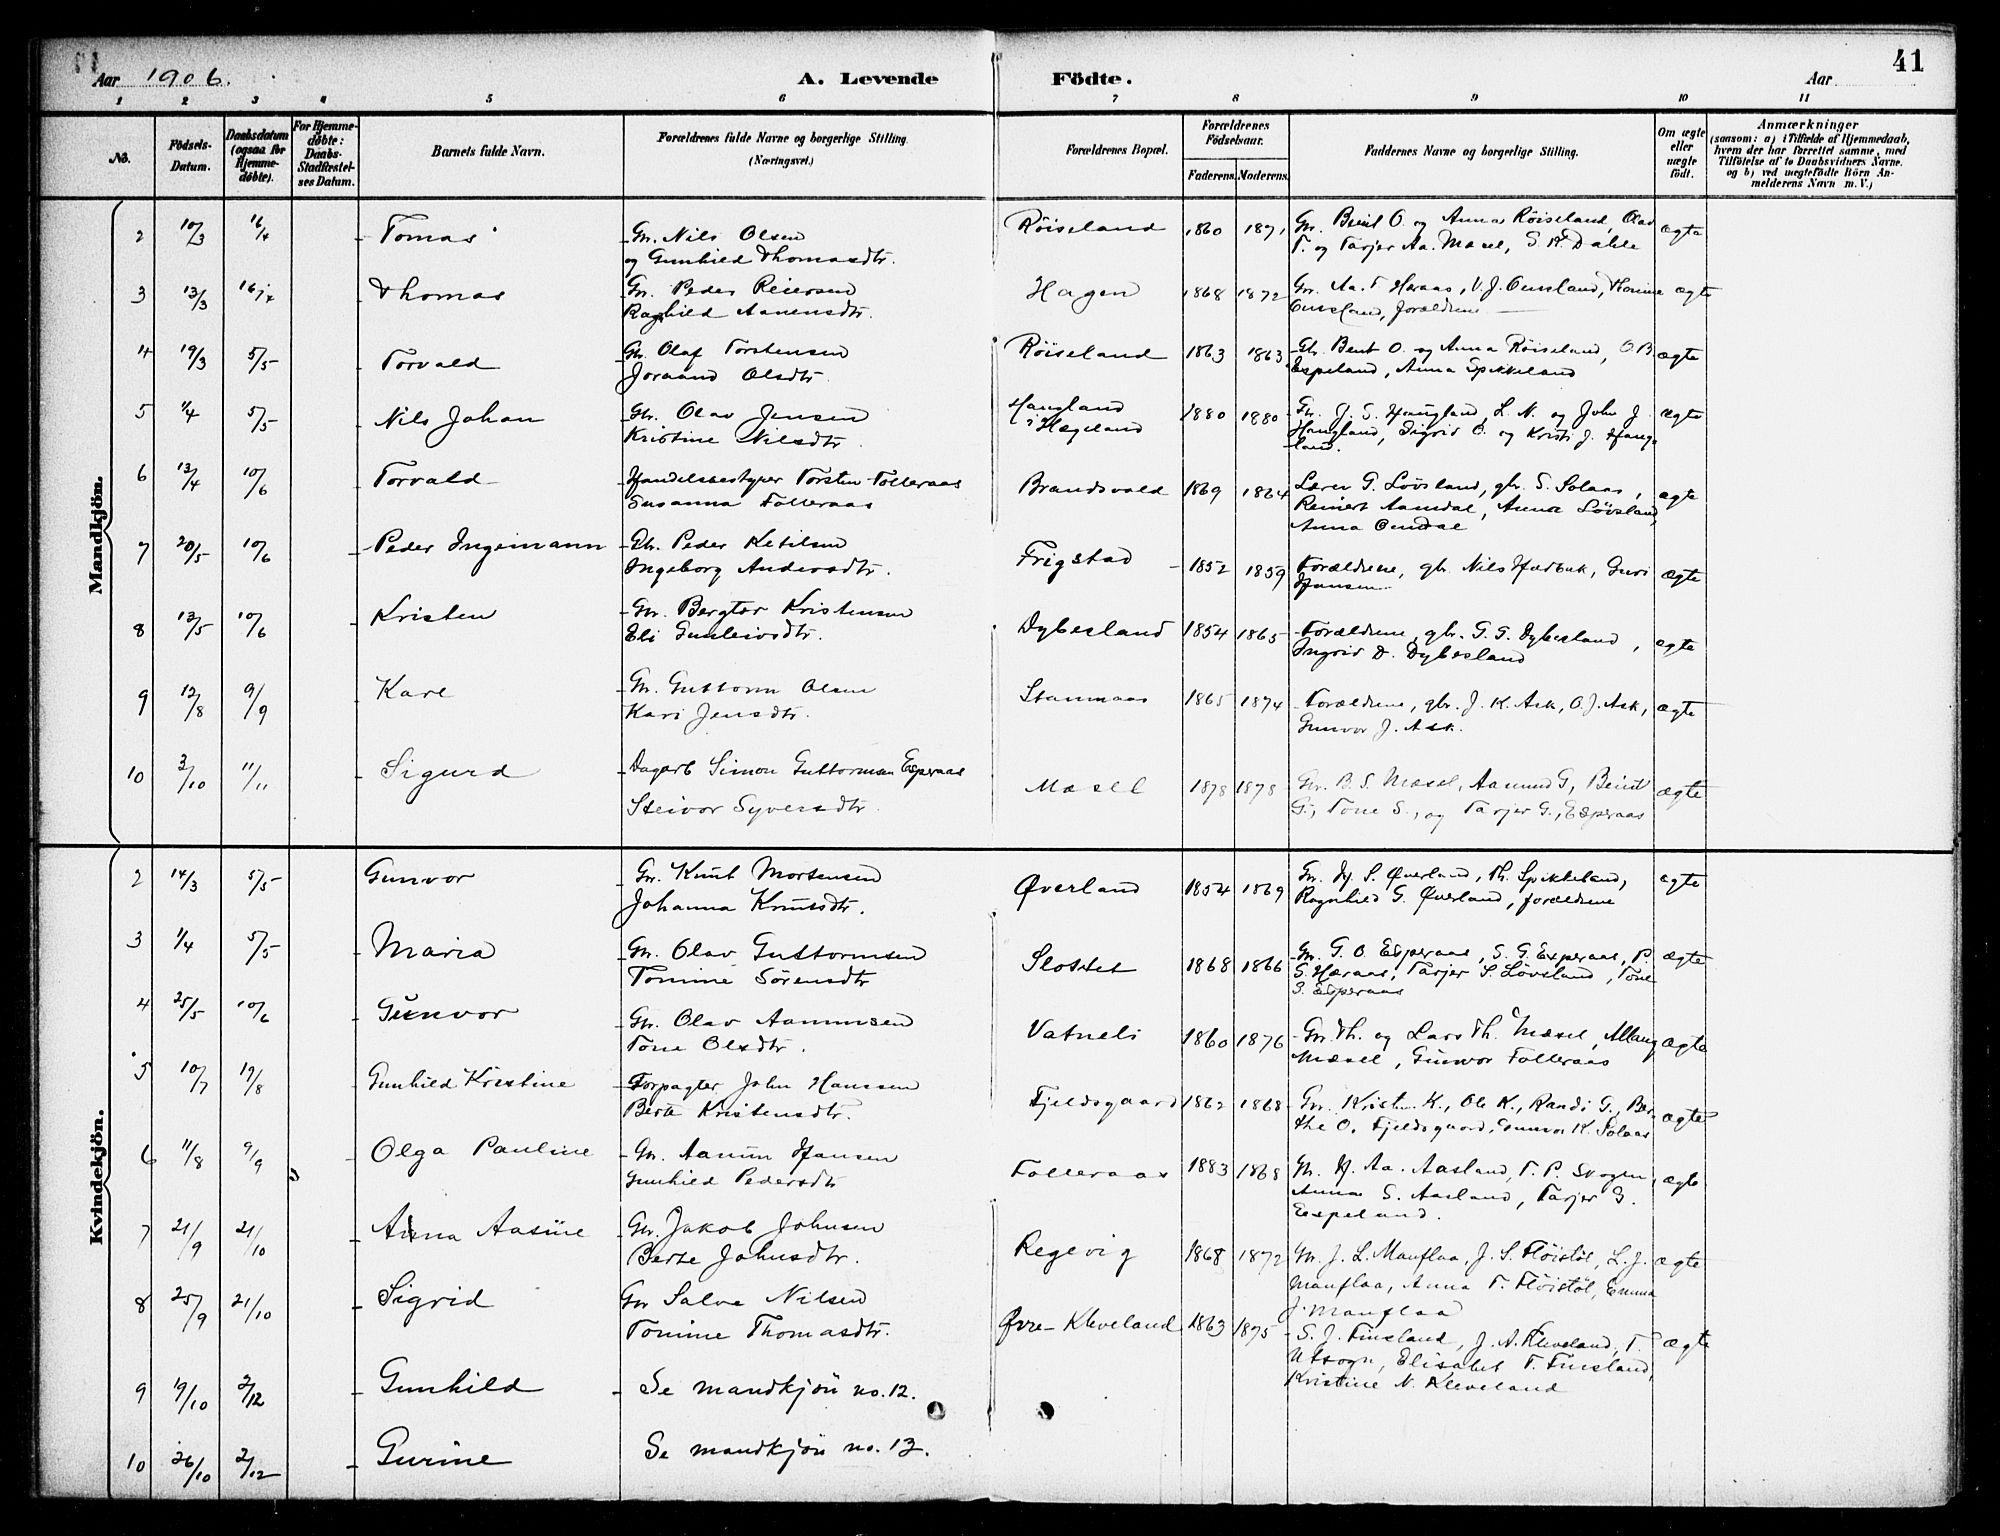 41
Aar 1906.
A. Levende Födte.
Aar
1 2 3 4 5 6 7 8 9 10 11
No.
Födsels-Datum.
Daabsdatum (ogsaa for Hjemmedøbte).
For Hjemmedøbte: Daabs-Stadfæstelses Datum.
Barnets fulde Navn.
Forældrenes fulde Navne og borgerlige Stilling. (Næringsvei.)
Forældrenes Bopæl.
Forældrenes Födselsaar.
Faderens. Moderens.
Faddernes Navne og borgerlige Stilling.
Om ægte eller uægte født.
Anmærkninger
(saasom: a) i Tilfælde af Hjemmedaab, hvem der har forrettet samme, med Tilföielse af to Daabsvidners Navne. og b) ved uægtefødte Börn Anmelderens Navn m. V.)
Mandkjön.
2 10/3 16/4 Tomas Gr. Nils Olsen Røiseland 1860 1871 Gr. Bent O. og Anna Røiseland, Olav ægte
og Gunhild Thomasdtr. T. og Tarjer Aa. Mæsel, S. A. Dahle
3 13/3 16/4 Thomas Gr. Peder Reiersen Hagen 1868 1872 Gr. Aa. T. Haraas, V. J. ægte
Ragnhild Aanensdtr. forældrene
4 19/3 5/5 Torvald Gr. Olaf Torstensen Røiseland 1863 1863 Gr. Bent O. og Anna Røiseland, O. B. ægte
Joraand Olsdtr. Espeland, Anna Spikkeland
5 1/4 5/5 Nils Johan Gr. Olav Jensen Haugland i Hægeland 1880 1880 Gr. J. S. Haugland, L. N. og John J. ægte
Kristine Nilsdtr. Haugland, Sigrid O. og Kristi J. Haugland.
6 13/4 10/6 Torvald Handelsbestyrer Torsten Folleraas Brandsvold 1869 1864 Lærer G. Løvsland, gbr. S. Solaas, ægte
Susanna Folleraas Reinert Aamdal, Anna Løvsland,
Anna
7 20/5 10/6 Peder Ingemann Gbr. Peder Ketilsen Frigstad 1852 1859 Forældrene, gbr. Nils, Guri ægte
Ingeborg Andersdtr. Hansen
8 13/5 10/6 Kristen Gr. Bergtor Kristensen Dybesland 1854 1865 Forældrene, gbr. G. G. Dybesland, ægte
Eli Gunleivsdtr. Ingrid D. Dybesland
9 12/8 9/9 Karl Gr. Guttorm Olsen Stanmaas 1865 1874 Forældrene, gbr. J. K. Ask, O. J. Ask, ægte
Kari Jensdtr. Gunvor J. Ask.
10 3/10 11/11 Sigurd Dagarb. Simon Guttormsen Esperaas Mæsel 1878 1878 Gr. B. S. Mæsel, Aamund G., Beint ægte
Steivor Syversdtr. G., Tone S., og Tarjer G., Esperaas
Kvindekjön.
2 14/3 5/5 Gunvor Gr. Knut Mortensen Øverland 1854 1869 Gr. H. S. Øverland, Th. Spikkeland, ægte
Johanna Knutsdtr. Ragnhild G. Øverland, forældrene
3 1/4 5/5 Maria Gr. Olav Guttormsen Slottet 1868 1866 Gr. G. O. Esperaas, S. G. Esperaas, P. ægte
Tomine Sörensdtr S. Haraas, Tarjer S. Løvsland, Tone
S. Esperaas
4 25/5 10/6 Gunvor Gr. Olav Aamundsen Vatneli 1860 1876 Gr. Th. og Lars Th. Mæsel, Allaug ægte
Tone Olsdtr. Mæsel, Gunvor Folleraas
5 10/7 19/8 Gunhild Kristine Forpagter John Hanssen Fjeldsgaard 1862 1868 Gr. Kristen K., Ole K., Randi G., Ber- ægte
Berte Kristensdtr. the O. Fjeldsgaard, Gunvor K. Solaas
6 11/8 9/9 Olga Pauline Gr. Aanun Hansen Folleraas 1883 1868 Gr. H. Aa. Aasland, T. P. Skogen, ægte
Gunhild Pedersdtr Anna S. Aasland, Tarjer G.
Espeland.
7 21/9 21/10 Anna Aasine Gr. Jakob Johnsen Regevig 1868 1872 Gr. J. L. Manflaa, J. S. Fløistøl, L. J. ægte
Berte Johnsdtr. Manflaa, Anna T. Fløistøl, Emma
J. Manflaa
8 25/9 21/10 Sigrid Gr Salve Nilsen Øvre-Kleveland 1863 1875 S. J. Finsland, J. A. Kleveland, T. ægte
Tomine Thomasdtr. Utsogn, Elisabet T. Finsland,
Kristine N. Kleveland
9 19/10 2/12 Gunhild Se mandkjön no. 12.
10 26/10 2/12 Gurine Se mandkjön no. 13.